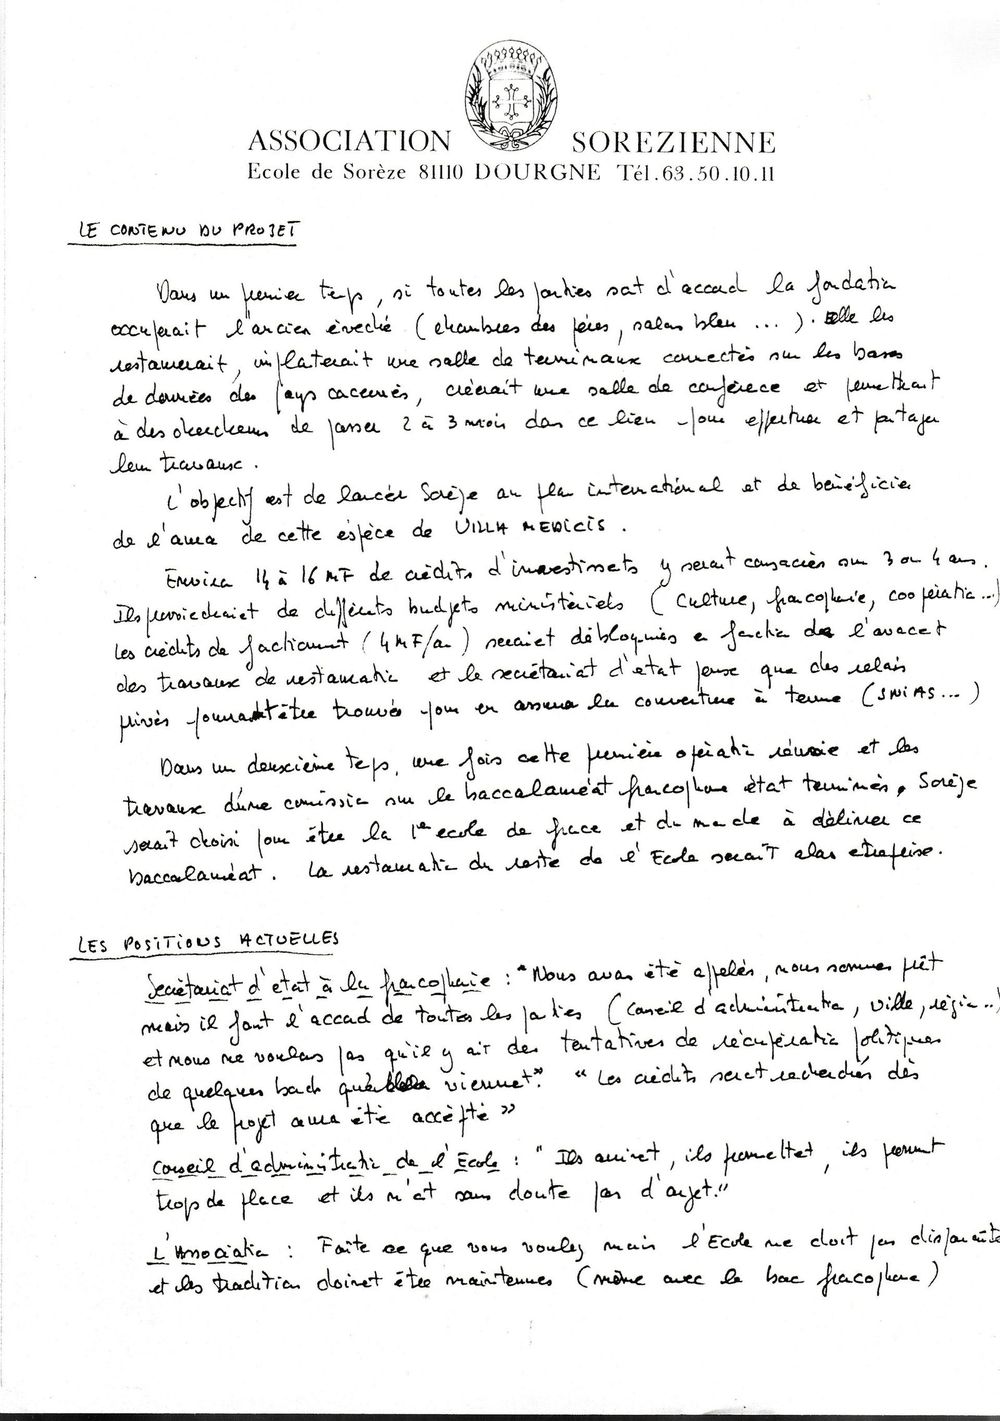 ASSOCIATION SOREZIENNE
Ecole de Sorèze 81110 DOURGNE Tél.63.50.10.11
LE CONTENU DU PROJET
Dans un premier temps, si toutes les parties sont d'accord la fondation
occuperait l'ancien évêché (chambres des pères, salon bleu ...). Elle les
restaurerait, implanterait une salle de terminaux connectés sur les bases
de données des pays concernés, créerait une salle de conférence et permettrait
à des chercheurs de passer 2 à 3 mois dans ce lieu pour effectuer et partager
leur travaux.
L'objectif est de lancer Sorèze au plan international et de bénéficier
de l'aura de cette espèce de VILLA MEDICIS.
Environ 14 à 16 MF de crédits d'investissets y serait consacrés sur 3 ou 4 ans.
Ils proviendraient de différents budgets ministériels (Culture, francophonie, coopération...)
Les crédits de fonctionnement (4 MF/an) seraient débloqués en fonction de l'avancement
des travaux de restauration et le secrétariat d'état pense que des relais
privés pourraient être trouvés pour en assurer la couverture à terme (SNIAS...)
Dans un deuxième temps, une fois cette première opération réussie et les
travaux d'une commission sur le baccalauréat francophone étant terminés, Sorèze
serait choisi pour être la 1re ecole de france et du monde à délivrer ce
baccalauréat. La restauration du reste de l'Ecole serait alors entreprise.
LES POSITIONS ACTUELLES
Secrétariat d'état à la francophonie : "Nous avons été appelés, nous sommes prêt
mais il faut l'accord de toutes les parties (Conseil d'administration, ville, région...)
et nous ne voulons pas qu'il y ait des tentatives de récupération politiques
de quelques bords qu'elles viennent." "Les crédits seront recherchés dès
que le projet aura été accepté"
Conseil d'administration de l'École : "Ils arrivent, ils promettent, ils prennent
trop de place et ils n'ont sans doute pas d'argent."
L'Association : Faite ce que vous voulez mais l'Ecole ne doit pas disparaître
et les tradition doivent être maintenues (même avec le bac francophone)